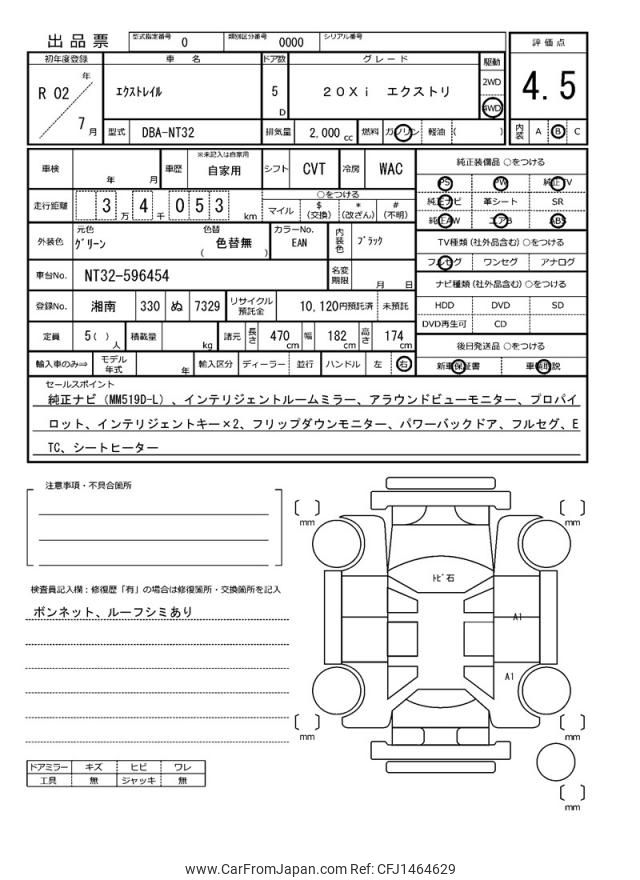 出品票 型式指定番号 0 類別区分番号 0000 シリアル番号
初年度登録 車名 ドア数 グレード 駆動 評価点
R 02 年 7 月 エクストレイル 5 D 20Xi エクストリ 2WD 4WD 4.5
型式 DBA-NT32 排気量 2,000 cc 燃料 ガソリン 軽油 ( ) 内装 A B C
車検 年 月 車歴 ※未記入は自家用 自家用 シフト CVT 冷房 WAC
走行距離 3 万 4 千 0 5 3 km ○をつける
マイル $ (交換) * (改ざん) # (不明)
外装色 元色 グリーン 色替 色替無 ( ) カラーNo. EAN 内装色 ブラック
車台No. NT32-596454 名変期限 月 日
登録No. 湘南 330 ぬ 7329 リサイクル預託金 10,120円預託済 未預託
定員 5( ) 人 積載量 kg 諸元 長さ 470 cm 幅 182 cm 高さ 174 cm
輸入車のみ⇒ モデル年式 年 輸入区分 ディーラー 並行 ハンドル 左 右
純正装備品 ○をつける
PS PW 純正TV
純正ナビ 革シート SR
純正AW エアB ABS
TV種類 (社外品含む) ○をつける
フルセグ ワンセグ アナログ
ナビ種類 (社外品含む) ○をつける
HDD DVD SD
DVD再生可 CD
後日発送品 ○をつける
新車保証書 車輌取説
セールスポイント
純正ナビ (MM519D-L) 、インテリジェントルームミラー、アラウンドビューモニター、プロパイ
ロット、インテリジェントキー×2、フリップダウンモニター、パワーバックドア、フルセグ、E
TC、シートヒーター
注意事項・不具合箇所
検査員記入欄：修復歴「有」の場合は修復箇所・交換箇所を記入
ボンネット、ルーフシミあり
ドアミラー キズ ヒビ ワレ
工具 無 ジャッキ 無
[ ] mm [ ] mm
トビ石
A1
A1
[ ] mm [ ] mm
[ ] mm
www.CarFromJapan.com Ref: CFJ1464629